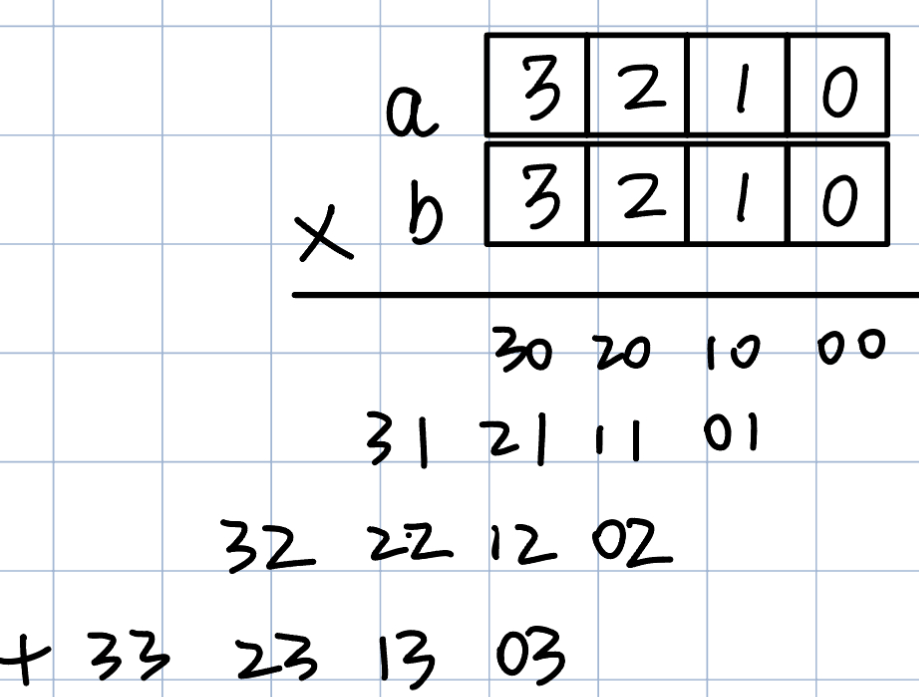 a 3 2 1 0
× b 3 2 1 0
30 20 10 00
31 21 11 01
32 22 12 02
+ 33 23 13 03